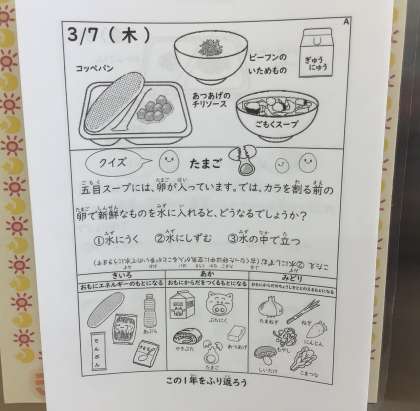 A
3/7(木)
コッペパン
ビーフンの
いためもの
ぎゅう
にゅう
あつあげの
チリソース
ごもくスープ
クイズ
たまご
五目スープには、卵が入っています。では、カラを割る前の
卵で新鮮なものを水に入れると、どうなるでしょうか?
①水にうく ②水にしずむ ③水の中で立つ
きいろ あか みどり
おもにエネルギーのもとになる おもにからだをつくるもとになる
あぶら
でんぷん
ぶたにく
かまぼこ
あつあげ
たまご
たまねぎ
ねぎ
もやし
にんじん
しいたけ
こまつな
この1年をふり返ろう